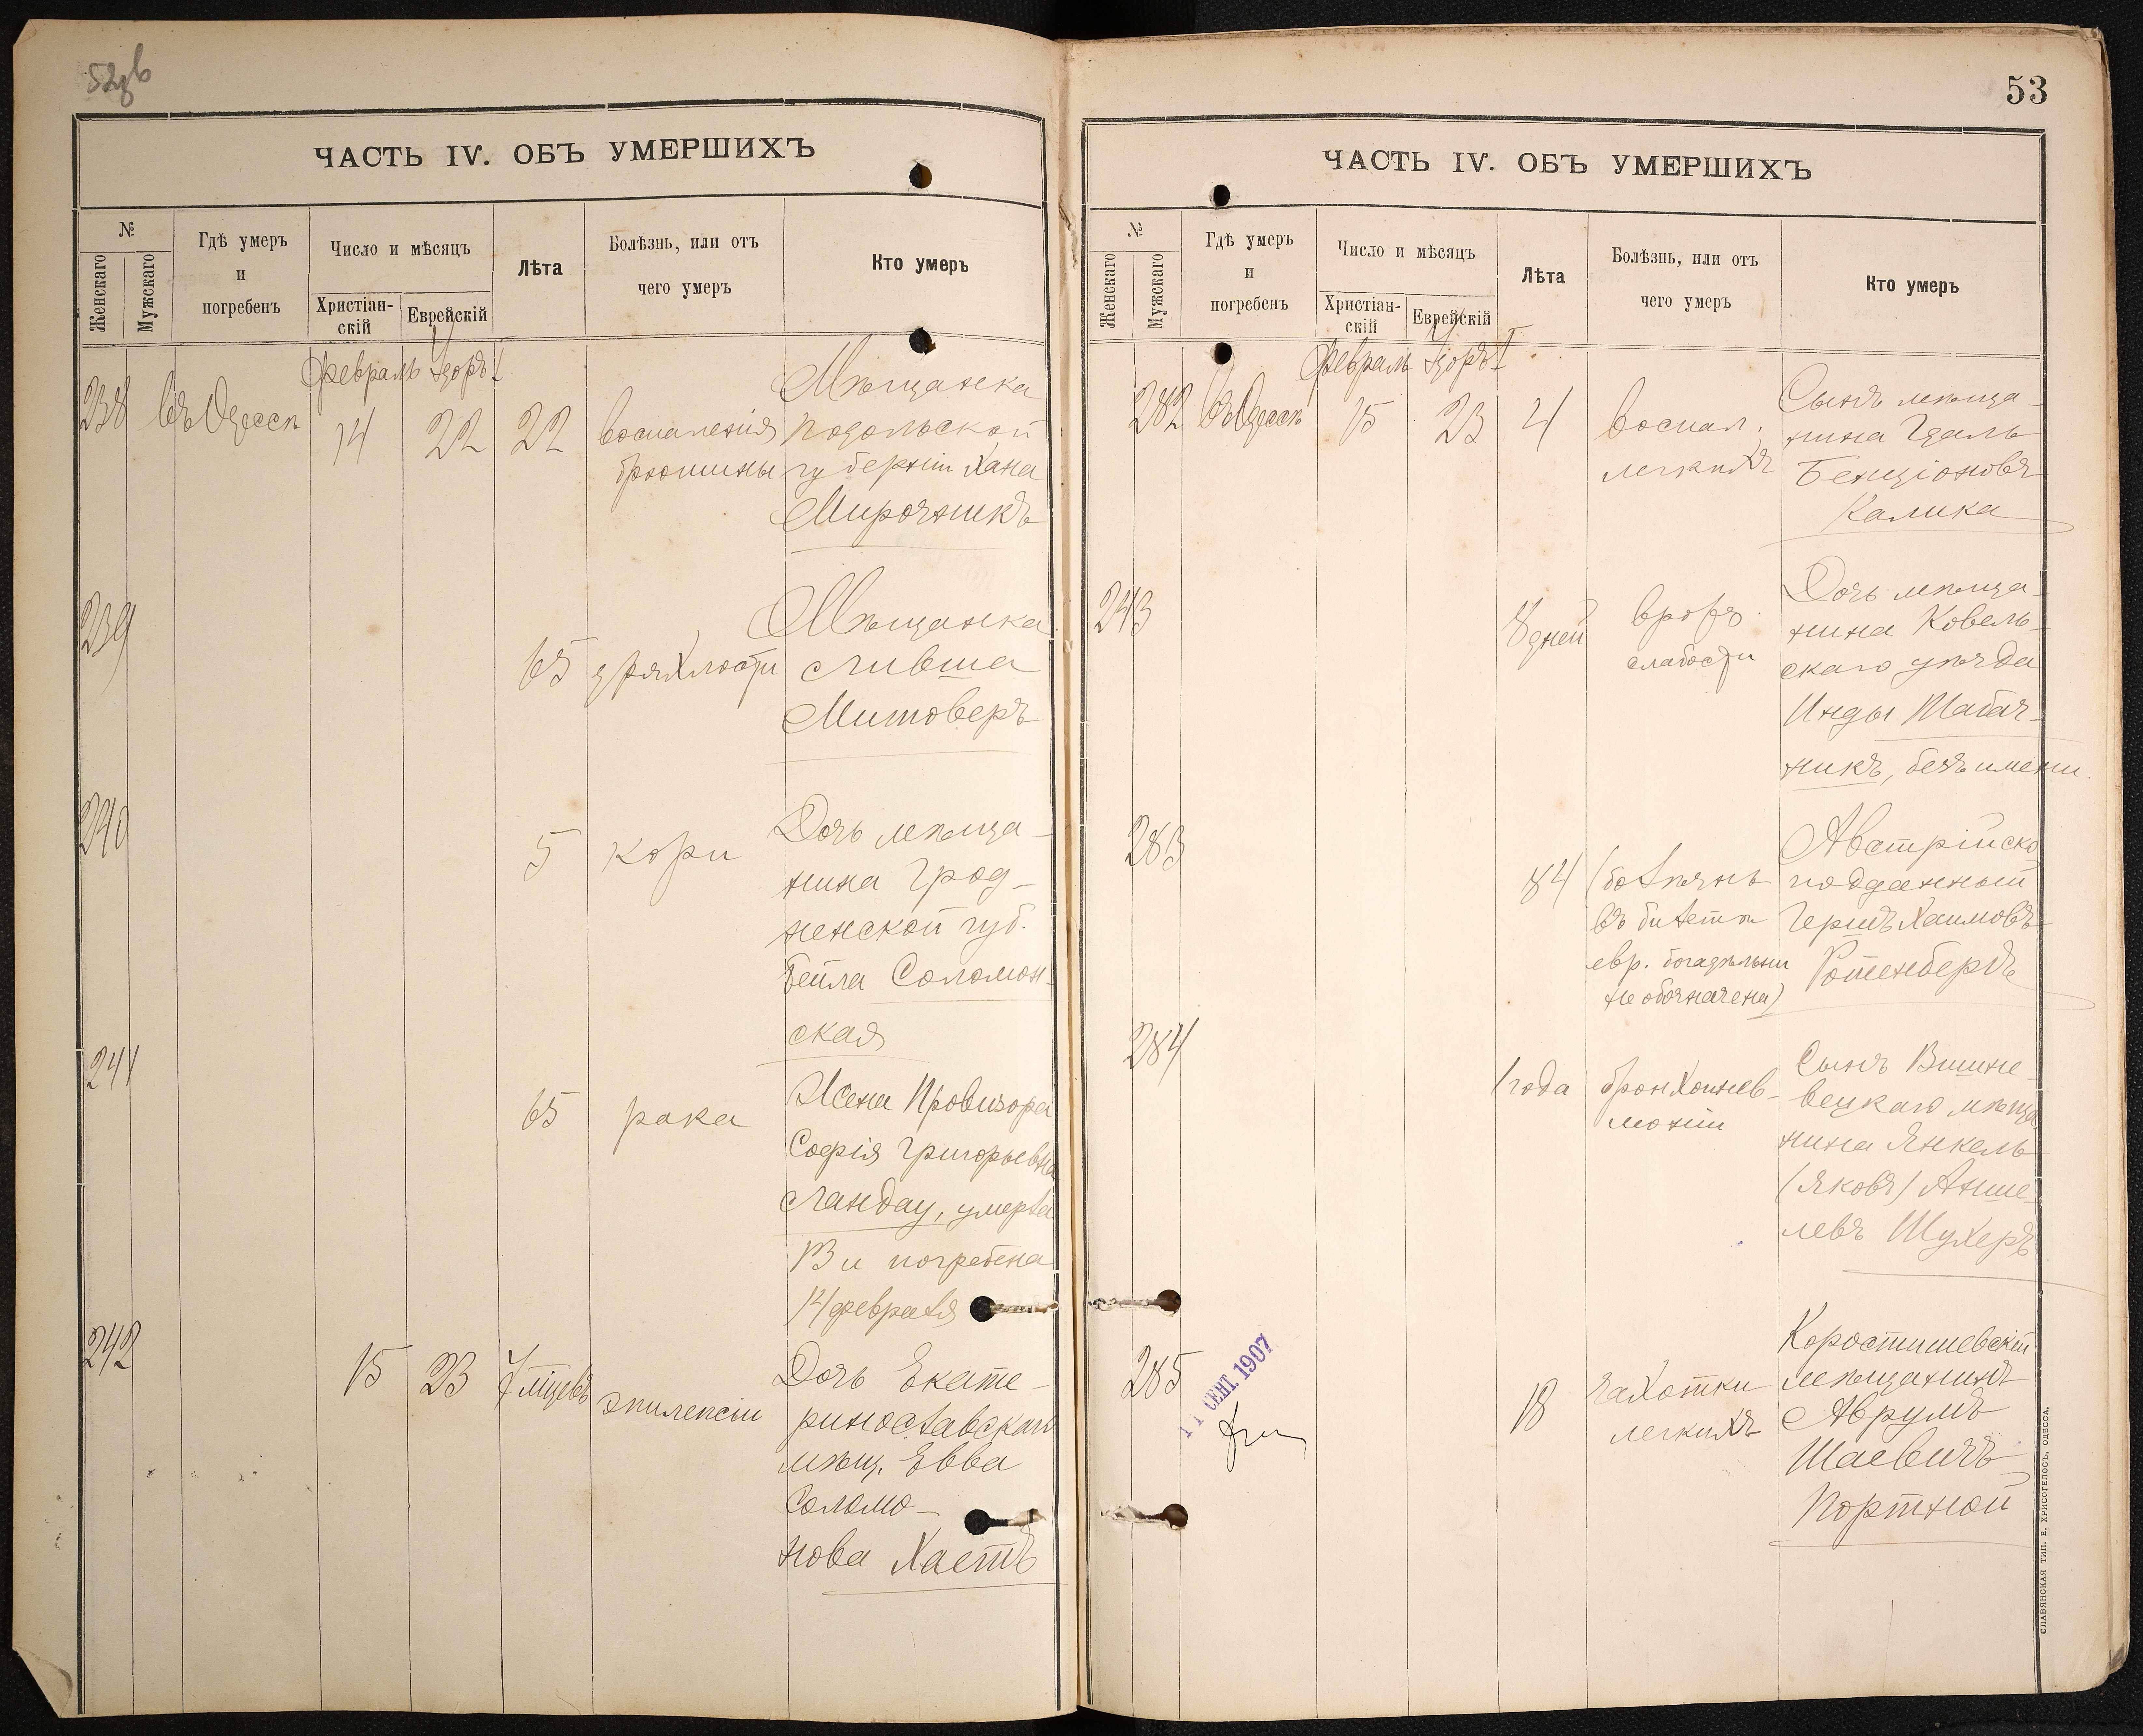 52об
ЧАСТЬ IV. ОБЪ УМЕРШИХЪ
№
Женскаго
Мужскаго
Гдѣ умеръ
и
погребенъ
Число и мѣсяцъ
Христіан-
скій
Еврейскій
Лѣта
Болѣзнь, или отъ
чего умеръ
Кто умеръ
Февраль Адоръ I
238 въ Одессѣ 14 22 22 воспаленія брюшины
Мѣщанка
Подольской
губерніи Хана
Мирочникъ
239 65 дряхлости
Мѣщанка
Ливша
Митоверъ
240 5 кори
Дочь мѣща-
нина Грод-
ненской губ.
Бейла Соломон-
ская
241 65 рака
Жена Провизора
Софія Григорьевна
Ландау, умерла
13 и погребена
14 февраля
242 15 23 7 мѣцевъ эпилепсіи
Дочь Екате-
ринославскаго
мѣщ. Евва
Соломо-
нова Хаетъ
53
ЧАСТЬ IV. ОБЪ УМЕРШИХЪ
№
Женскаго
Мужскаго
Гдѣ умеръ
и
погребенъ
Число и мѣсяцъ
Христіан-
скій
Еврейскій
Лѣта
Болѣзнь, или отъ
чего умеръ
Кто умеръ
Февраль Адоръ I
282 въ Одессѣ 15 23 4 воспал. легкихъ
Сынъ мѣща-
нина Гдаль
Бенціоновъ
Калика
243 8 дней врожд. слабости
Дочь мѣща-
нина Ковель-
скаго уѣзда
Инды Табач-
никъ, безъ имени
283 84 (болѣзнь
въ билетѣ
евр. богадѣльни
не обозначена)
Австрійско
подданный
Гершъ Хаимовъ
Ротенбергъ
284 1 года бронхопнев-
моніи
Сынъ Вишне-
вецкаго мѣща
нина Янкель
(Яковъ) Анше-
левъ Шухеръ
285 18 чахотки
легкихъ
Коростишевскій
мѣщанинъ
Аврумъ
Шаевичъ
Портной
11 СЕНТ. 1907
СЛАВЯНСКАЯ ТИП. Е. ХРИСОГЕЛОСЪ, ОДЕССА.